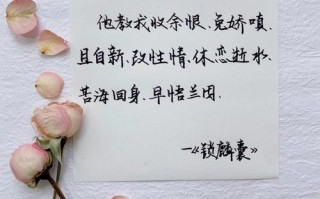 他教我收余恨、免娇嗔、
且自新、改性情、休恋逝水、
苦海回身、早悟兰因。
—《锁麟囊》